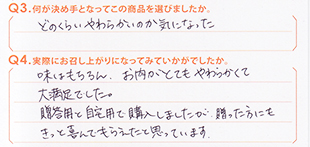 Q3.何が決め手となってこの商品を選びましたか。
どのくらいやわらかいのか気になった
Q4.実際にお召し上がりになってみていかがでしたか。
味はもちろん、お肉がとてもやわらかくて
大満足でした。
贈答用と自宅用で購入しましたが、贈った方にも
きっと喜んでもらえたと思っています。